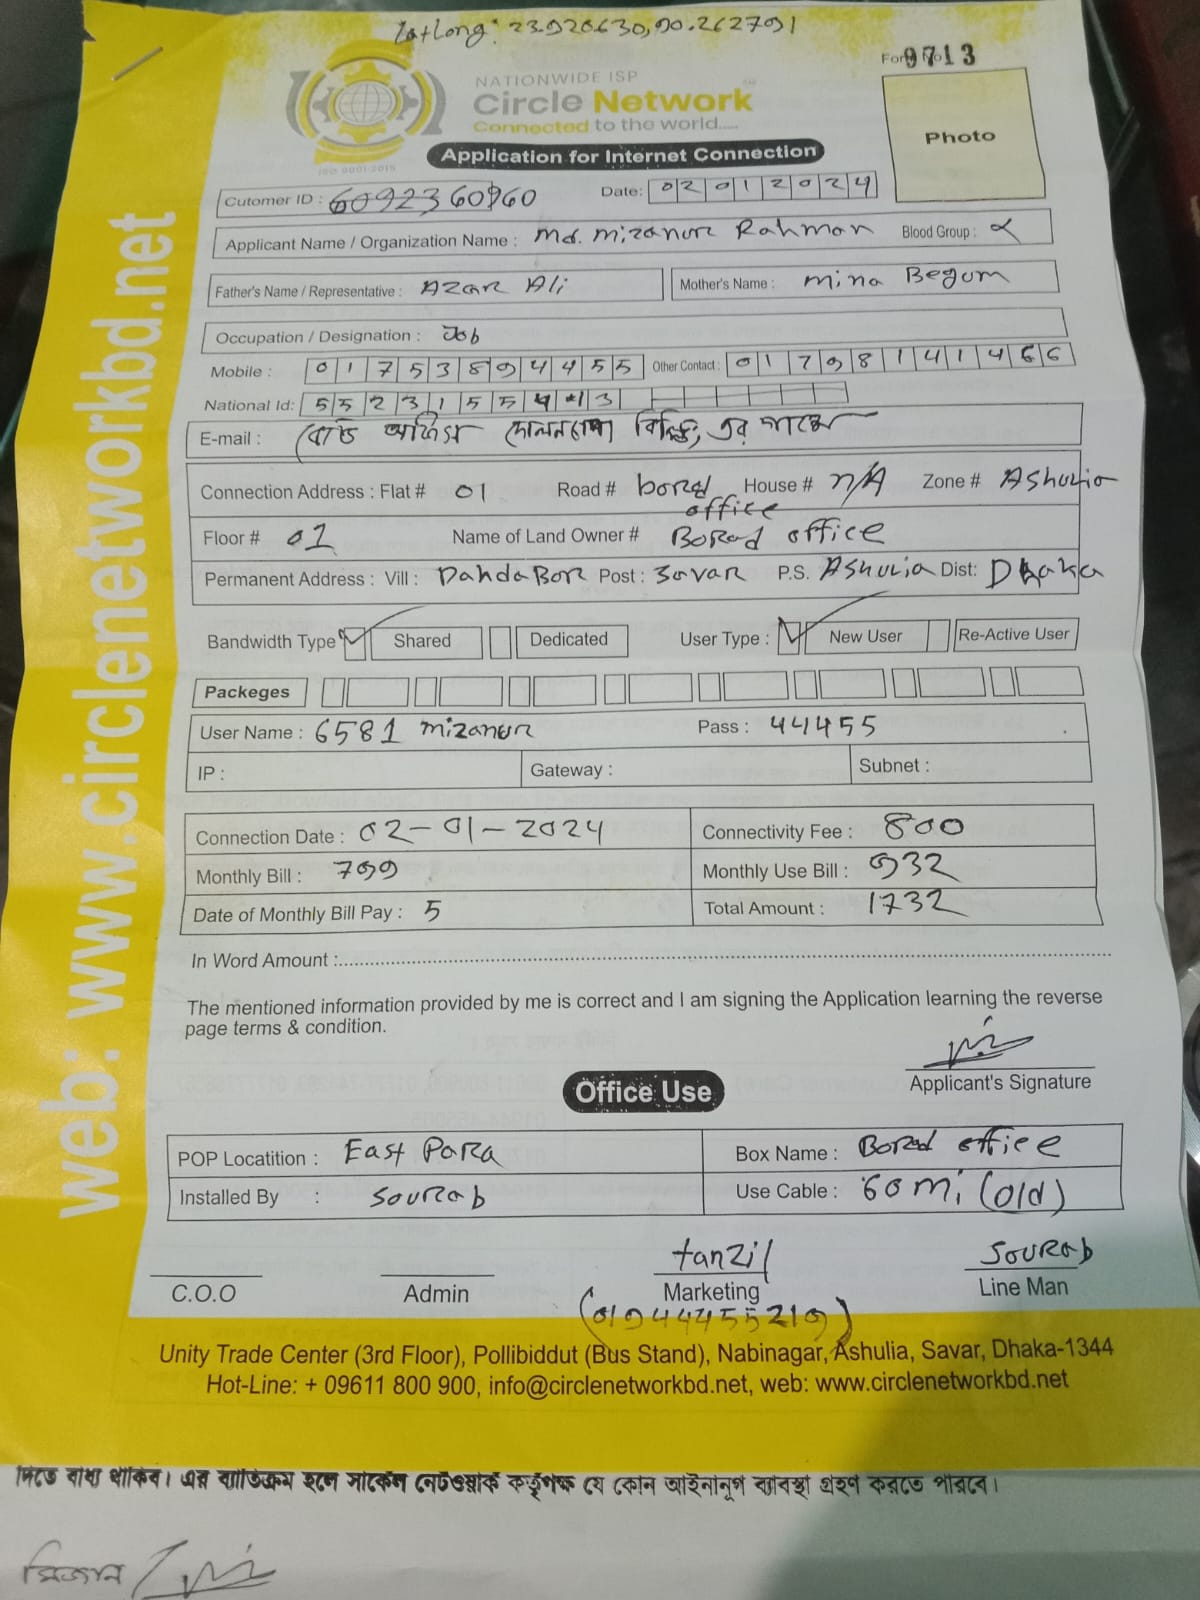 Lat Long: 23.920630,90.262791
Form No 9713
NATIONWIDE ISP
Circle Network
Connected to the world.....
ISO 9001:2015
Photo
Application for Internet Connection
Cutomer ID : 6092360960 Date: 02012024
Applicant Name / Organization Name : Md. Mizanur Rahman Blood Group :
Father's Name / Representative : Azar Ali Mother's Name : Mina Begum
Occupation / Designation : Job
Mobile : 01753894455 Other Contact : 01798141466
National Id: 5523155413
E-mail : বোর্ড অফিস বিল্ডিং, এর পাশে
Connection Address : Flat # 01 Road # borad office House # n/A Zone # Ashulia
Floor # 01 Name of Land Owner # Borad office
Permanent Address : Vill : DandaBor Post : Savar P.S. Ashulia Dist: Dhaka
Bandwidth Type Shared Dedicated User Type : New User Re-Active User
Packeges
User Name : 6581 mizanur Pass : 44455
IP : Gateway : Subnet :
Connection Date : 02-01-2024 Connectivity Fee : 800
Monthly Bill : 799 Monthly Use Bill : 932
Date of Monthly Bill Pay : 5 Total Amount : 1732
In Word Amount :
The mentioned information provided by me is correct and I am signing the Application learning the reverse
page terms & condition.
Applicant's Signature
Office Use
POP Locatition : East Para Box Name : Borad office
Installed By : Sourab Use Cable : 60 mi (old)
tanzil Sourab
C.O.O Admin Marketing Line Man
(01944455219)
Unity Trade Center (3rd Floor), Pollibiddut (Bus Stand), Nabinagar, Ashulia, Savar, Dhaka-1344
Hot-Line: + 09611 800 900, info@circlenetworkbd.net, web: www.circlenetworkbd.net
web: www.circlenetworkbd.net
দিতে বাধ্য থাকিব। এর ব্যতিক্রম হলে সার্কেল নেটওয়ার্ক কর্তৃপক্ষ যে কোন আইনানুগ ব্যবস্থা গ্রহণ করতে পারবে।
মিজান